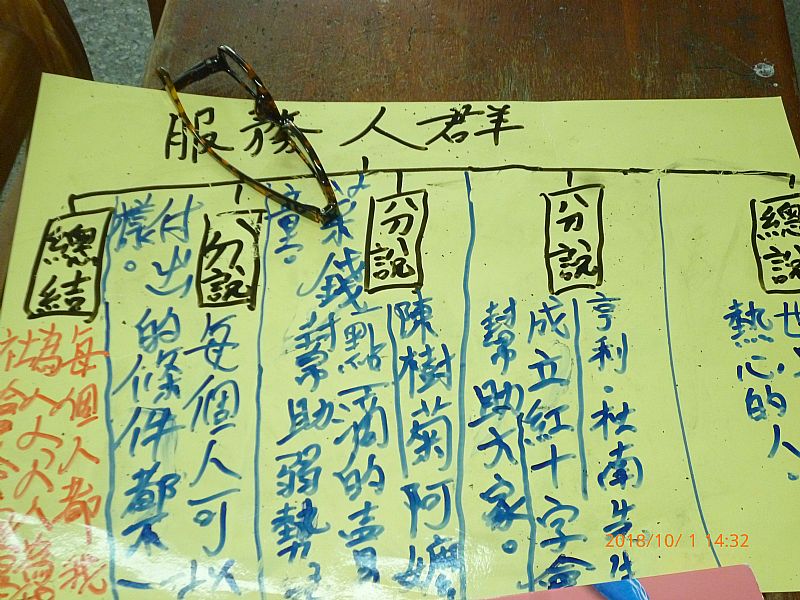 服務人群
總說
熱心的人。
分說
亨利·杜南先生
成立紅十字會
幫助大家。
分說
陳樹菊阿嬤
一點一滴的賣
菜錢幫助弱勢
童。
分說
每個人可以
付出的條件都不一
樣。
總結
每個人都
為人人人
社會
2018/10/ 1 14:32